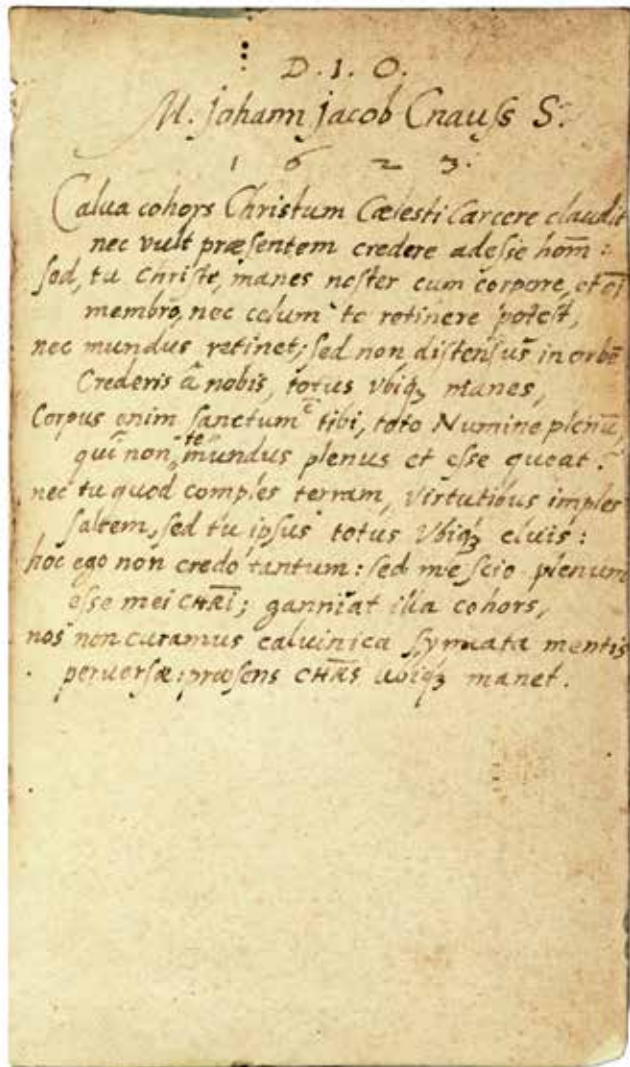 D. I. O.
M. Johann Jacob Cnauss S.
1 6 2 3.
Calua cohors Christum Cælesti Carcere claudit
nec vult præsentem credere adesse hom̄:
sed, tu Christe, manes noster cum corpore, et oī
membrō, nec celum te retinere potest,
nec mundus retinet; sed non distensus in orbē
Crederis â nobis, totus vbiqꝫ manes,
Corpus enim sanctum ē tibi, toto Numine plenū,
qui non te mundus plenus et esse queat.
nec tu quod comples terram, virtutibus imples
saltem, sed tu ipsus totus vbiqꝫ cluis:
hoc ego non credo tantum: sed me scio plenum
esse mei CHRĪ; ganniat illa cohors,
nos non curamus caluinica symata mentis
peruersæ: præsens CHRS̄ ubiqꝫ manet.